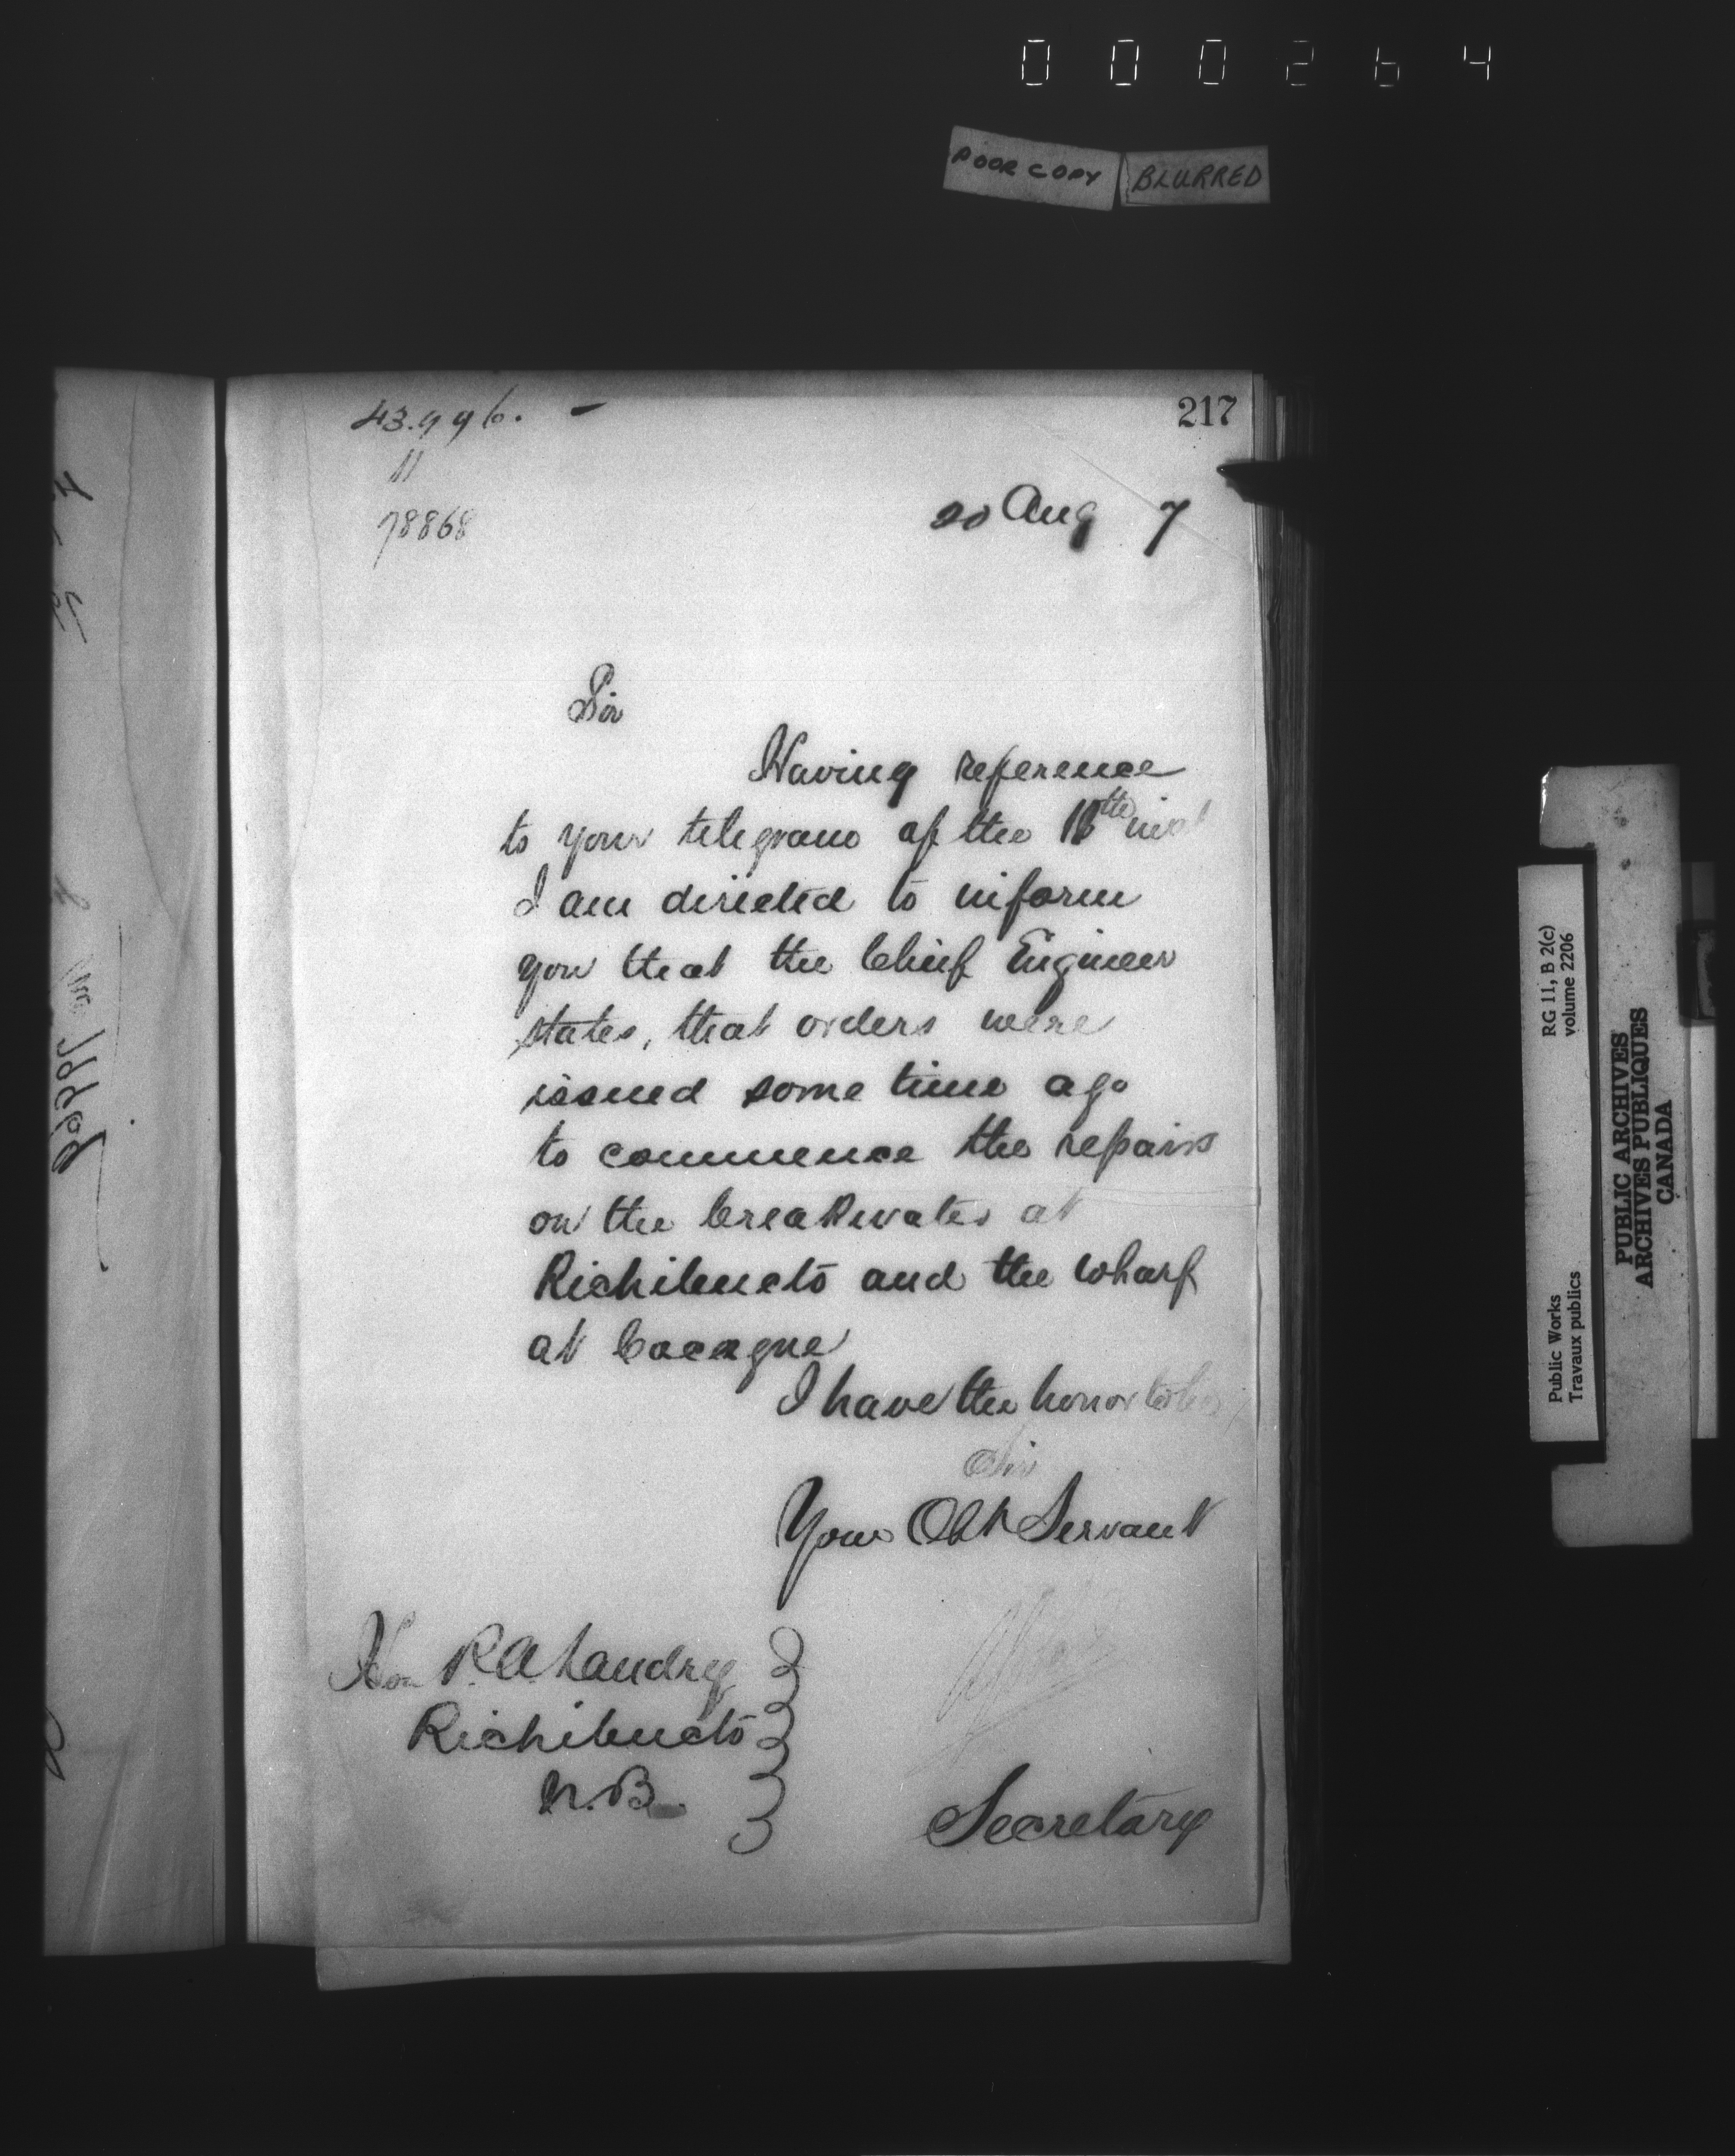 000264
POOR COPY BLURRED
43.996. -
217
11
78868
20 Aug 7
Sir
Having reference
to your telegram of the 18th inst
I am directed to inform
you that the Chief Engineer
states, that orders were
issued some time ago
to commence the repairs
on the breakwater at
Richibucto and the wharf
at Cocagne
I have the honor to be
Sir
Your Obt Servant
Hon P. A. Landry
Richibucto
N.B.
Secretary
RG 11, B 2(c)
volume 2206
Public Works
Travaux publics
PUBLIC ARCHIVES
ARCHIVES PUBLIQUES
CANADA